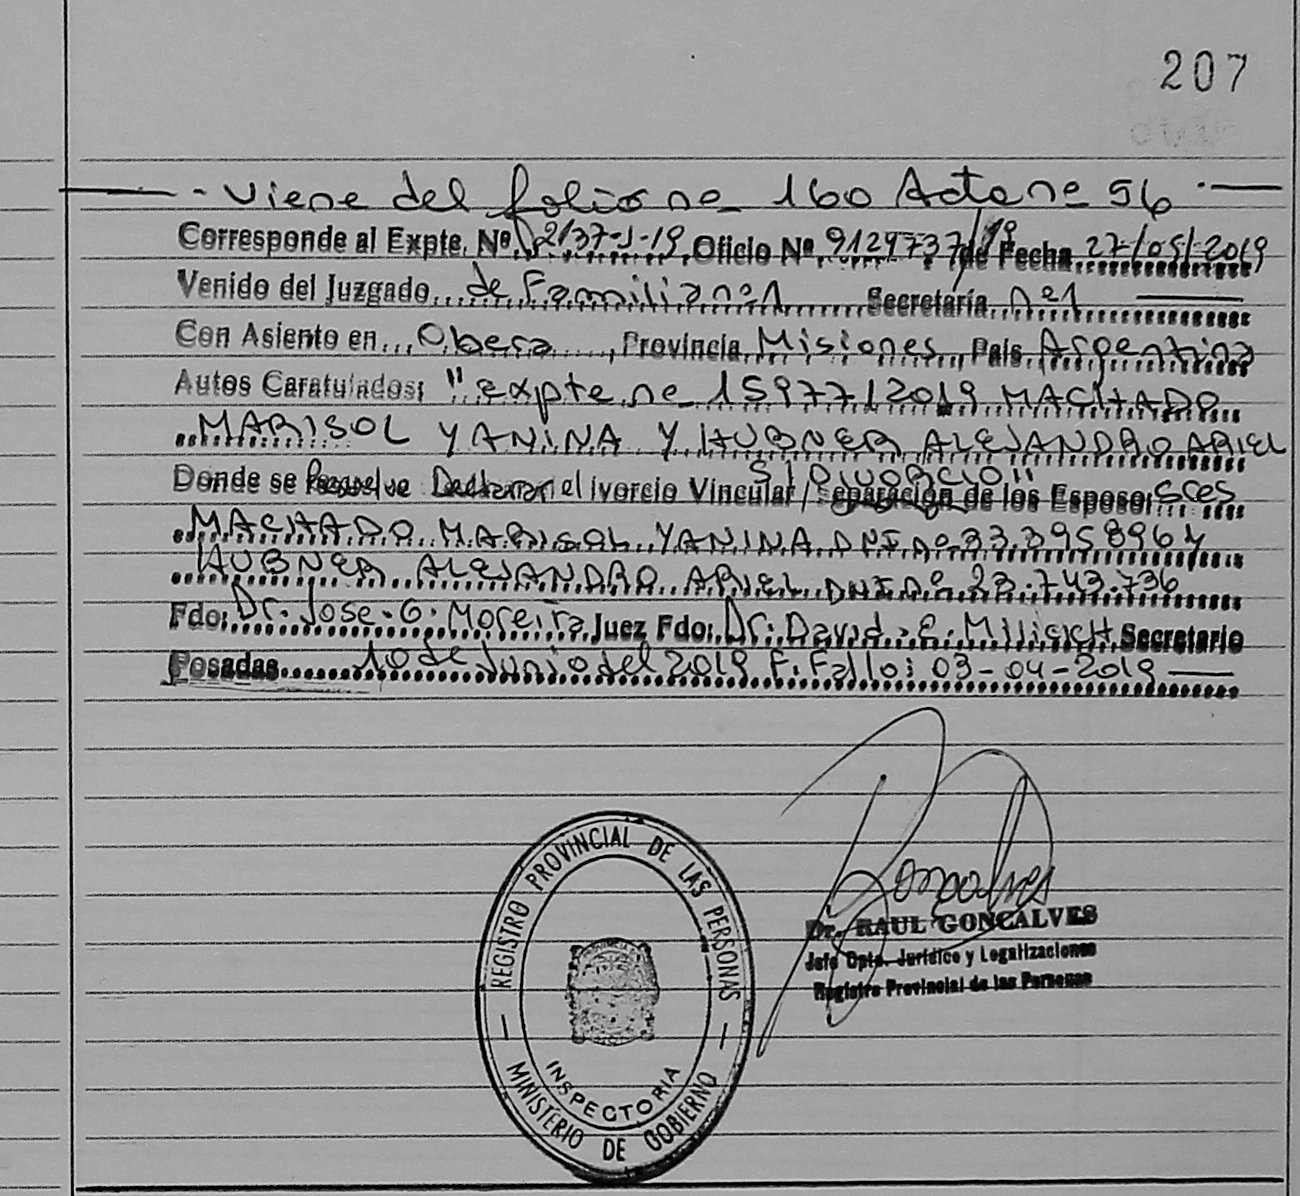 207
- Viene del folio nº 160 Acta nº 56 -
Corresponde al Expte. Nº 2137-J-19 Oficio Nº 9129737/19 de Fecha 27/05/2019
Venido del Juzgado de Familia nº1 Secretaría nº1
Con Asiento en Obera, Provincia Misiones, País Argentina
Autos Caratulados: "Expte nº 15977/2019 MACHADO
MARISOL YANINA Y HUBNER ALEJANDRO ARIEL
S/DIVORCIO"
Donde se Resuelve Declarar el ivorcio Vincular/Separación de los Esposo, sres
MACHADO MARISOL YANINA DNI nº 33.3958964
HUBNER ALEJANDRO ARIEL DNI nº 23.743.736
Fdo: Dr. Jose. G. Moreira Juez Fdo: Dr. David. E. Secretario
Posadas 10 de Junio del 2019 F. Fallo: 03-04-2019
Goncalves
Dr. RAUL GONCALVES
Jefe Dpto. Jurídico y Legalizaciones
Registro Provincial de las Personas
REGISTRO PROVINCIAL DE LAS PERSONAS
INSPECTORIA
MINISTERIO DE GOBIERNO